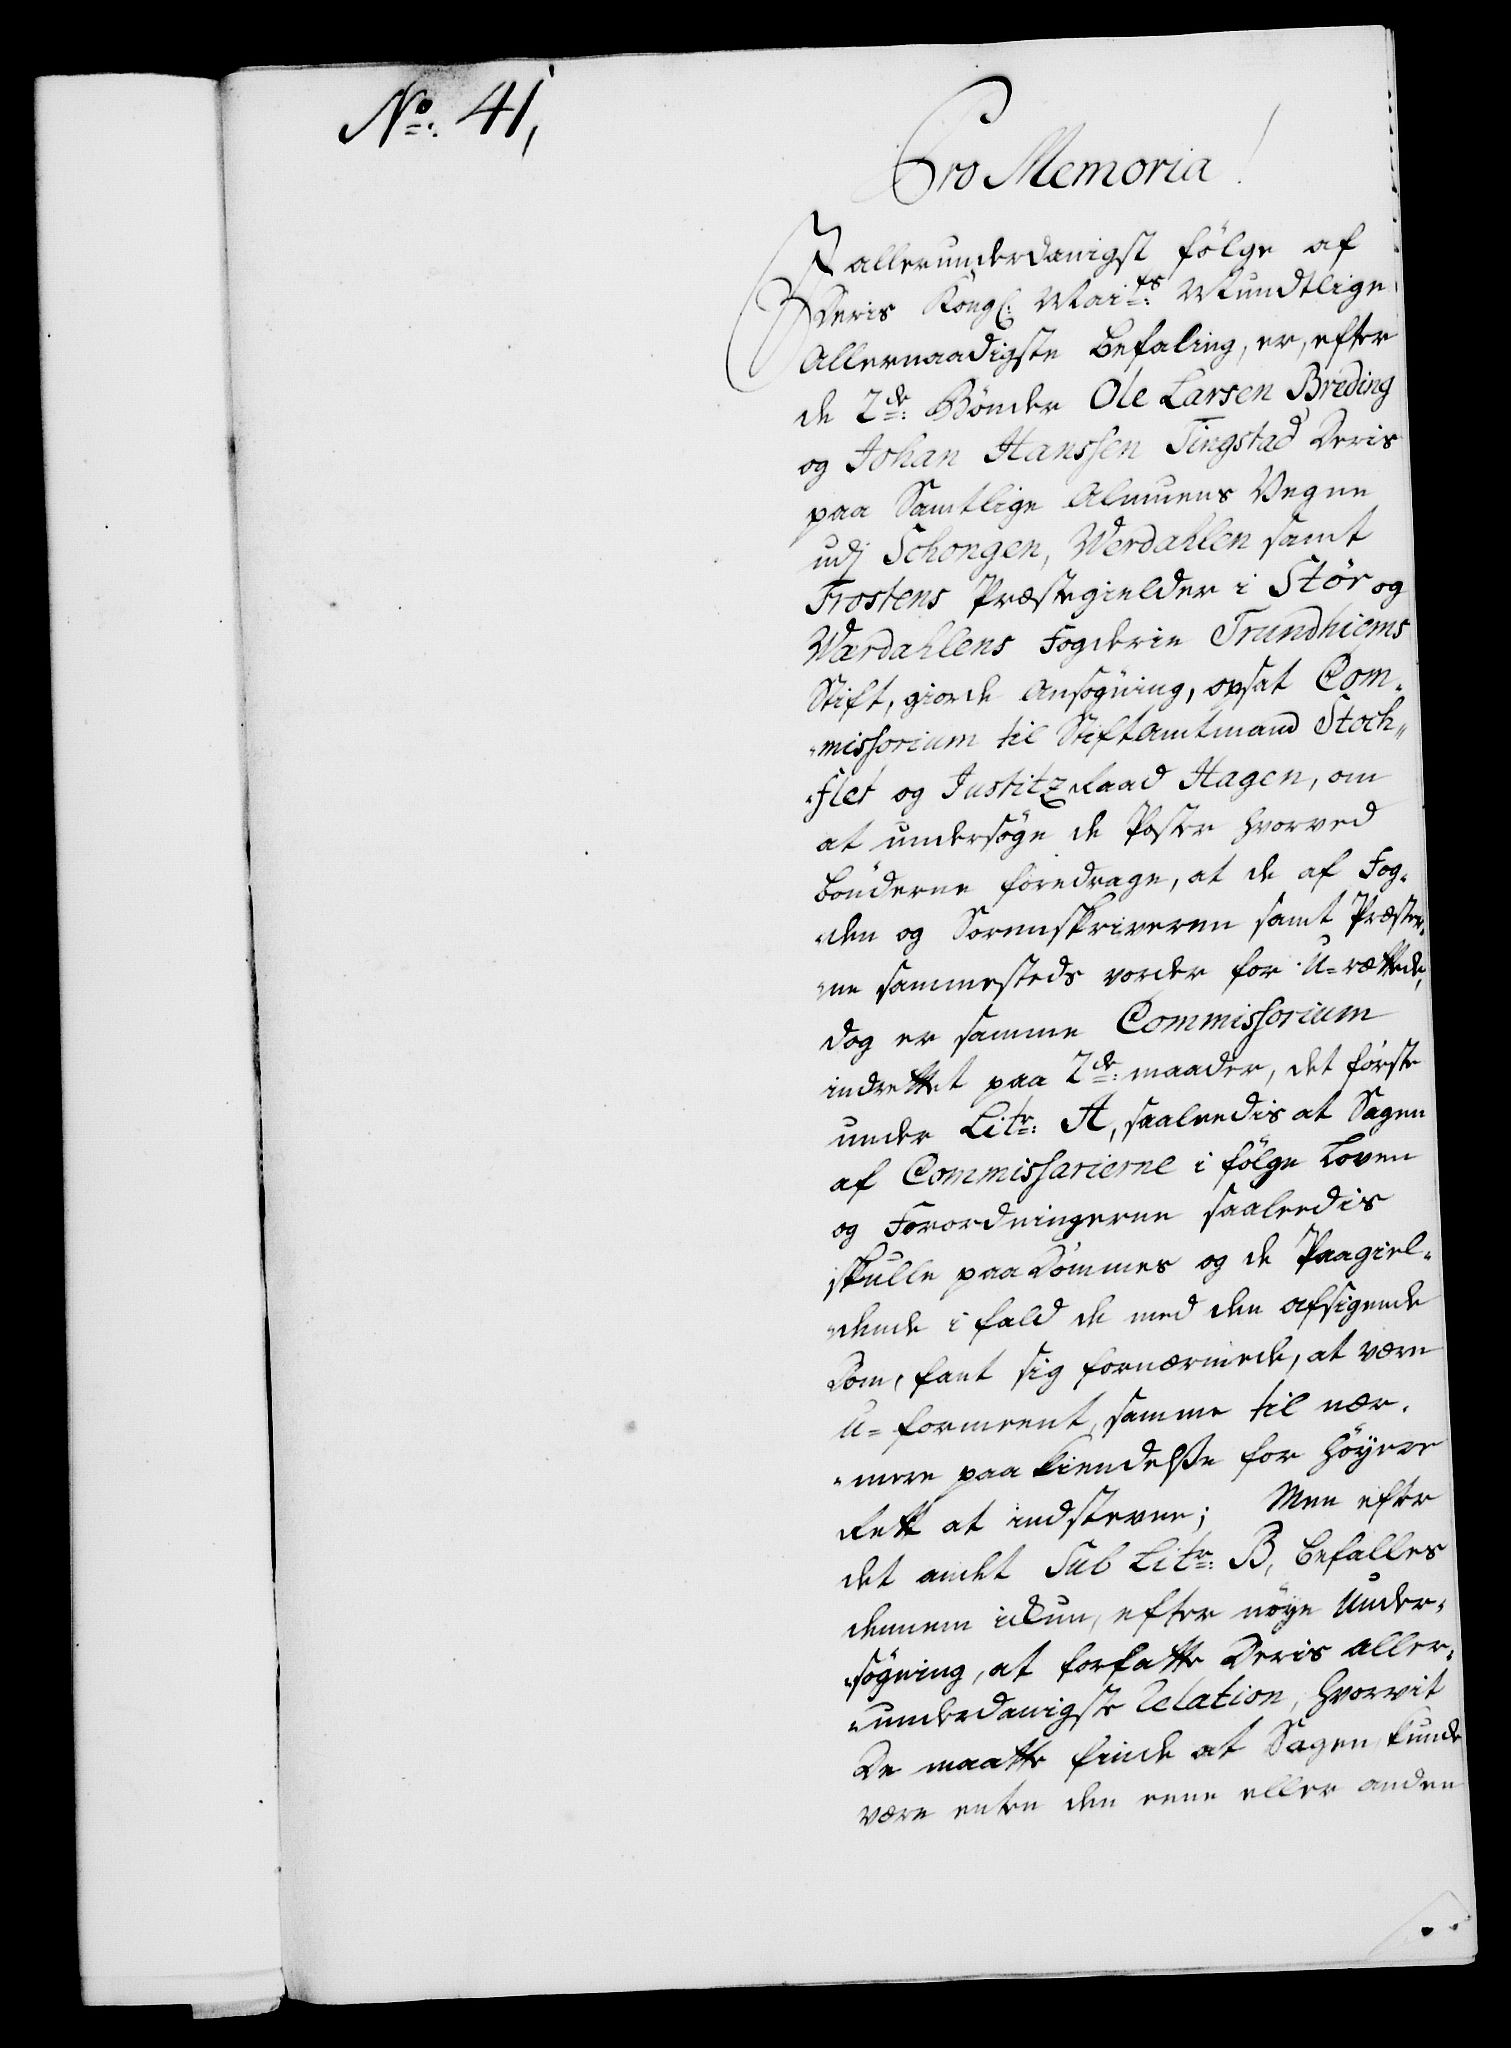 No: 41,
Pro Memoria!
I allerunderdanigst følge af
Deris Kongl: Maits: Mundtlige
Allernaadigste befaling, er, efter
de 2de: Bønder Ole Larsen Breding
og Johan Hanssen Tingstad Deris
paa Samtlige Almuens Vegne
udj Schongen, Werdahlen samt
Frostens Præstegielder i Stør og
Wærdahlens Fogderie Trundhiems
Stift, giorde Ansøgning, opsat Com-
-missorium til Stiftamtmand Stoch-
-flet og Justitz Raad Hagen, om
at undersøge de Poster hvorved
bønderne foredrage, at de af Fog-
-den og Sorenskriveren samt Præster-
-ne sammesteds vorder for U-rættede,
dog er samme Commissorium
indrettet paa 2de: maader, det første
under Litr: A, saaledis at Sagen
af Commissarierne i følge Loven
og Forordningerne saaledis
skulle paa Dømmes og de Paagiel-
-dende i fald de med den afsigende
Dom, fant sig fornærmede, at være
U-formeent, samme til nær-
-mere paa kiendelse for høyere
Rett at indstevne; Men efter
det andet Sub Litr: B, befalles
dennem ickun, efter nøye Under-
-søgning, at forfatte Deris aller-
-underdanigste Relation, hvorvit
De maatte finde at Sagen kunde
være enten den eene eller anden